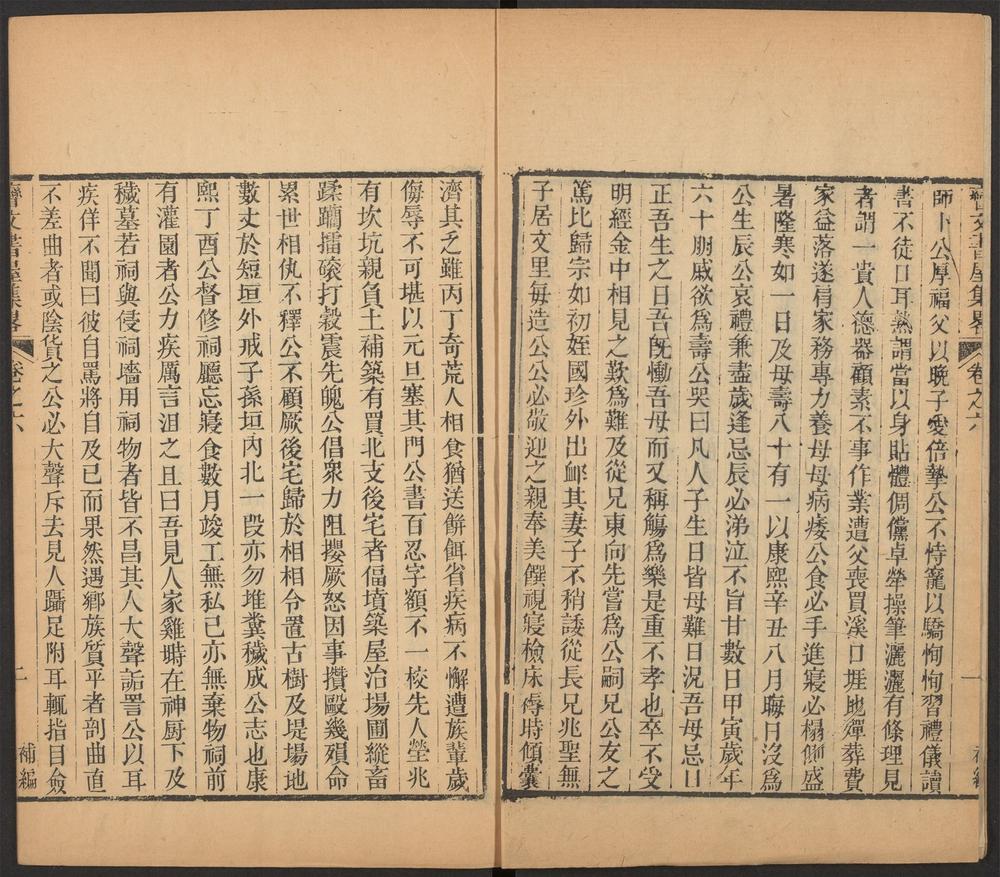 齊文書屋集畧 卷之六 一 補編
師卜公厚福父以晩子愛倍摯公不恃寵以驕恂恂習禮儀讀
書不徒口耳熟謂當以身貼體倜儻卓犖操筆灑灑有條理見
者謂一貴人德器顧素不事作業遭父喪買溪口堐地殫葬費
家益落遂肩家務專力養母母病痿公食必手進寢必榻側盛
暑隆寒如一日及母壽八十有一以康熙辛丑八月晦日沒為
公生辰公哀禮兼盡歲逢忌辰必涕泣不旨甘數日甲寅歲年
六十朋戚欲爲壽公哭曰凡人子生日皆母難日況吾母忌日
正吾生之日吾既慟吾母而又稱觴爲樂是重不孝也卒不受
明經金中相見之歎爲難及從兄東向先嘗爲公嗣兄公友之
篤比歸宗如初姪國珍外出卹其妻子不稍諉從長兄兆聖無
子居文里每造公公必敬迎之親奉美饌視寢檢床蓐時傾囊
濟其乏雖丙丁奇荒人相食猶送餅餌省疾病不懈遭族輩歲
侮辱不可堪以元旦塞其門公書百忍字額不一校先人塋兆
有坎坑親負土補築有買北支後宅者偪墳築屋治場圃縱畜
蹂躪擂磙打穀震先魄公倡衆力阻攖厥怒因事攢毆幾殞命
累世相仇不釋公不顧厥後宅歸於相相令置古樹及堤塲地
數丈於短垣外戒子孫垣內北一段亦勿堆糞穢成公志也康
熙丁酉公督修祠廳忘寢食數月竣工無私己亦無棄物祠前
有灌園者公力疾厲言沮之且曰吾見人家雞塒在神厨下及
穢墓若祠與侵祠墻用祠物者皆不昌其人大聲詬詈公以耳
疾佯不聞曰彼自罵將自及已而果然遇鄉族質平者剖曲直
不差曲者或陰貨之公必大聲斥去見人躡足附耳輒指目僉
齊文書屋集畧 卷之六 二 補編